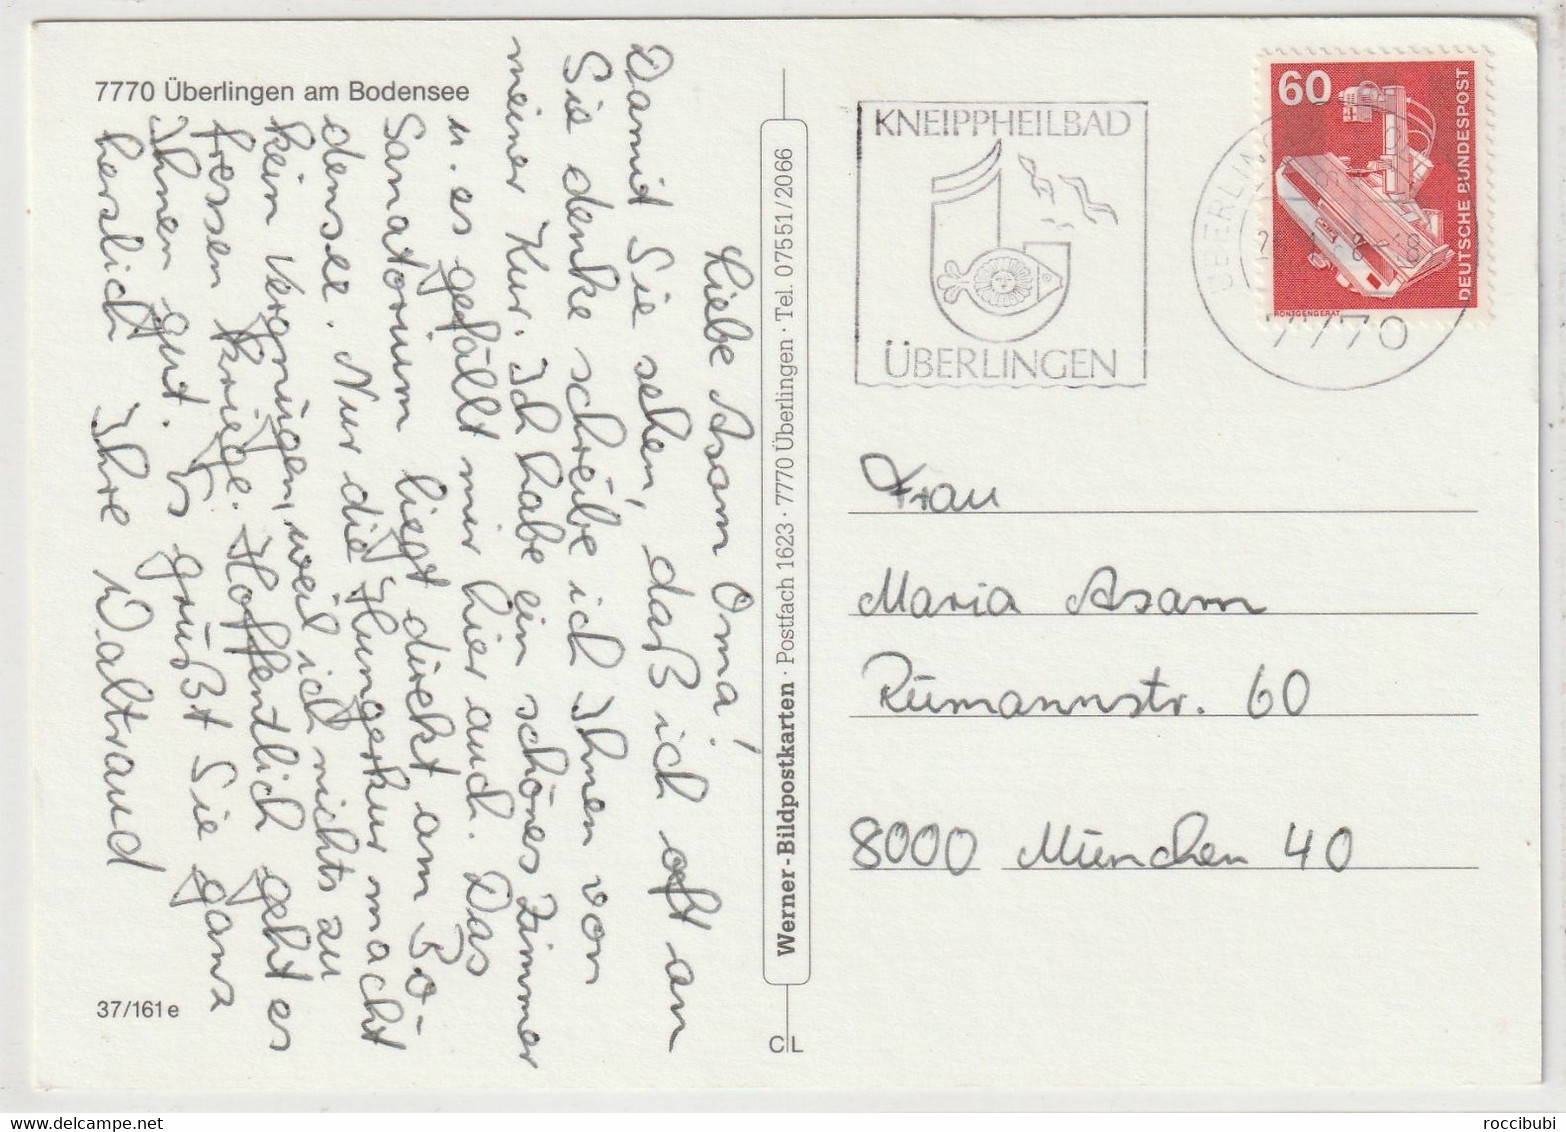 7770 Überlingen am Bodensee
Liebe Asam Oma!
Damit Sie sehen, daß ich oft an
Sie denke schreibe ich Ihnen von
meiner Kur. Ich habe ein schönes Zimmer
u. es gefällt mir hier auch. Das
Sanatorium liegt direkt am Bo-
densee. Nur die Hungerkur macht
kein Vergnügen, weil ich nichts zu
fressen kriege. Hoffentlich geht es
Ihnen gut. Es grüßt Sie ganz
herzlich Ihre Waltraud
37/161 e
Werner-Bildpostkarten · Postfach 1623 · 7770 Überlingen · Tel. 07551/2066
C L
KNEIPPHEILBAD
ÜBERLINGEN
7770
60
DEUTSCHE BUNDESPOST
RÖNTGENGERÄT
Frau
Maria Asam
Rümannstr. 60
8000 München 40
roccibubi